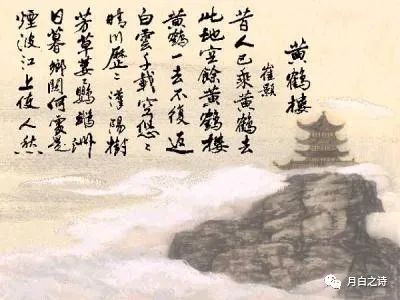 黃鶴樓
崔顥
昔人已乘黃鶴去
此地空餘黃鶴樓
黃鶴一去不復返
白雲千載空悠々
晴川歷々漢陽樹
芳草萋々鸚鵡洲
日暮鄉關何處是
煙波江上使人愁
月白之诗